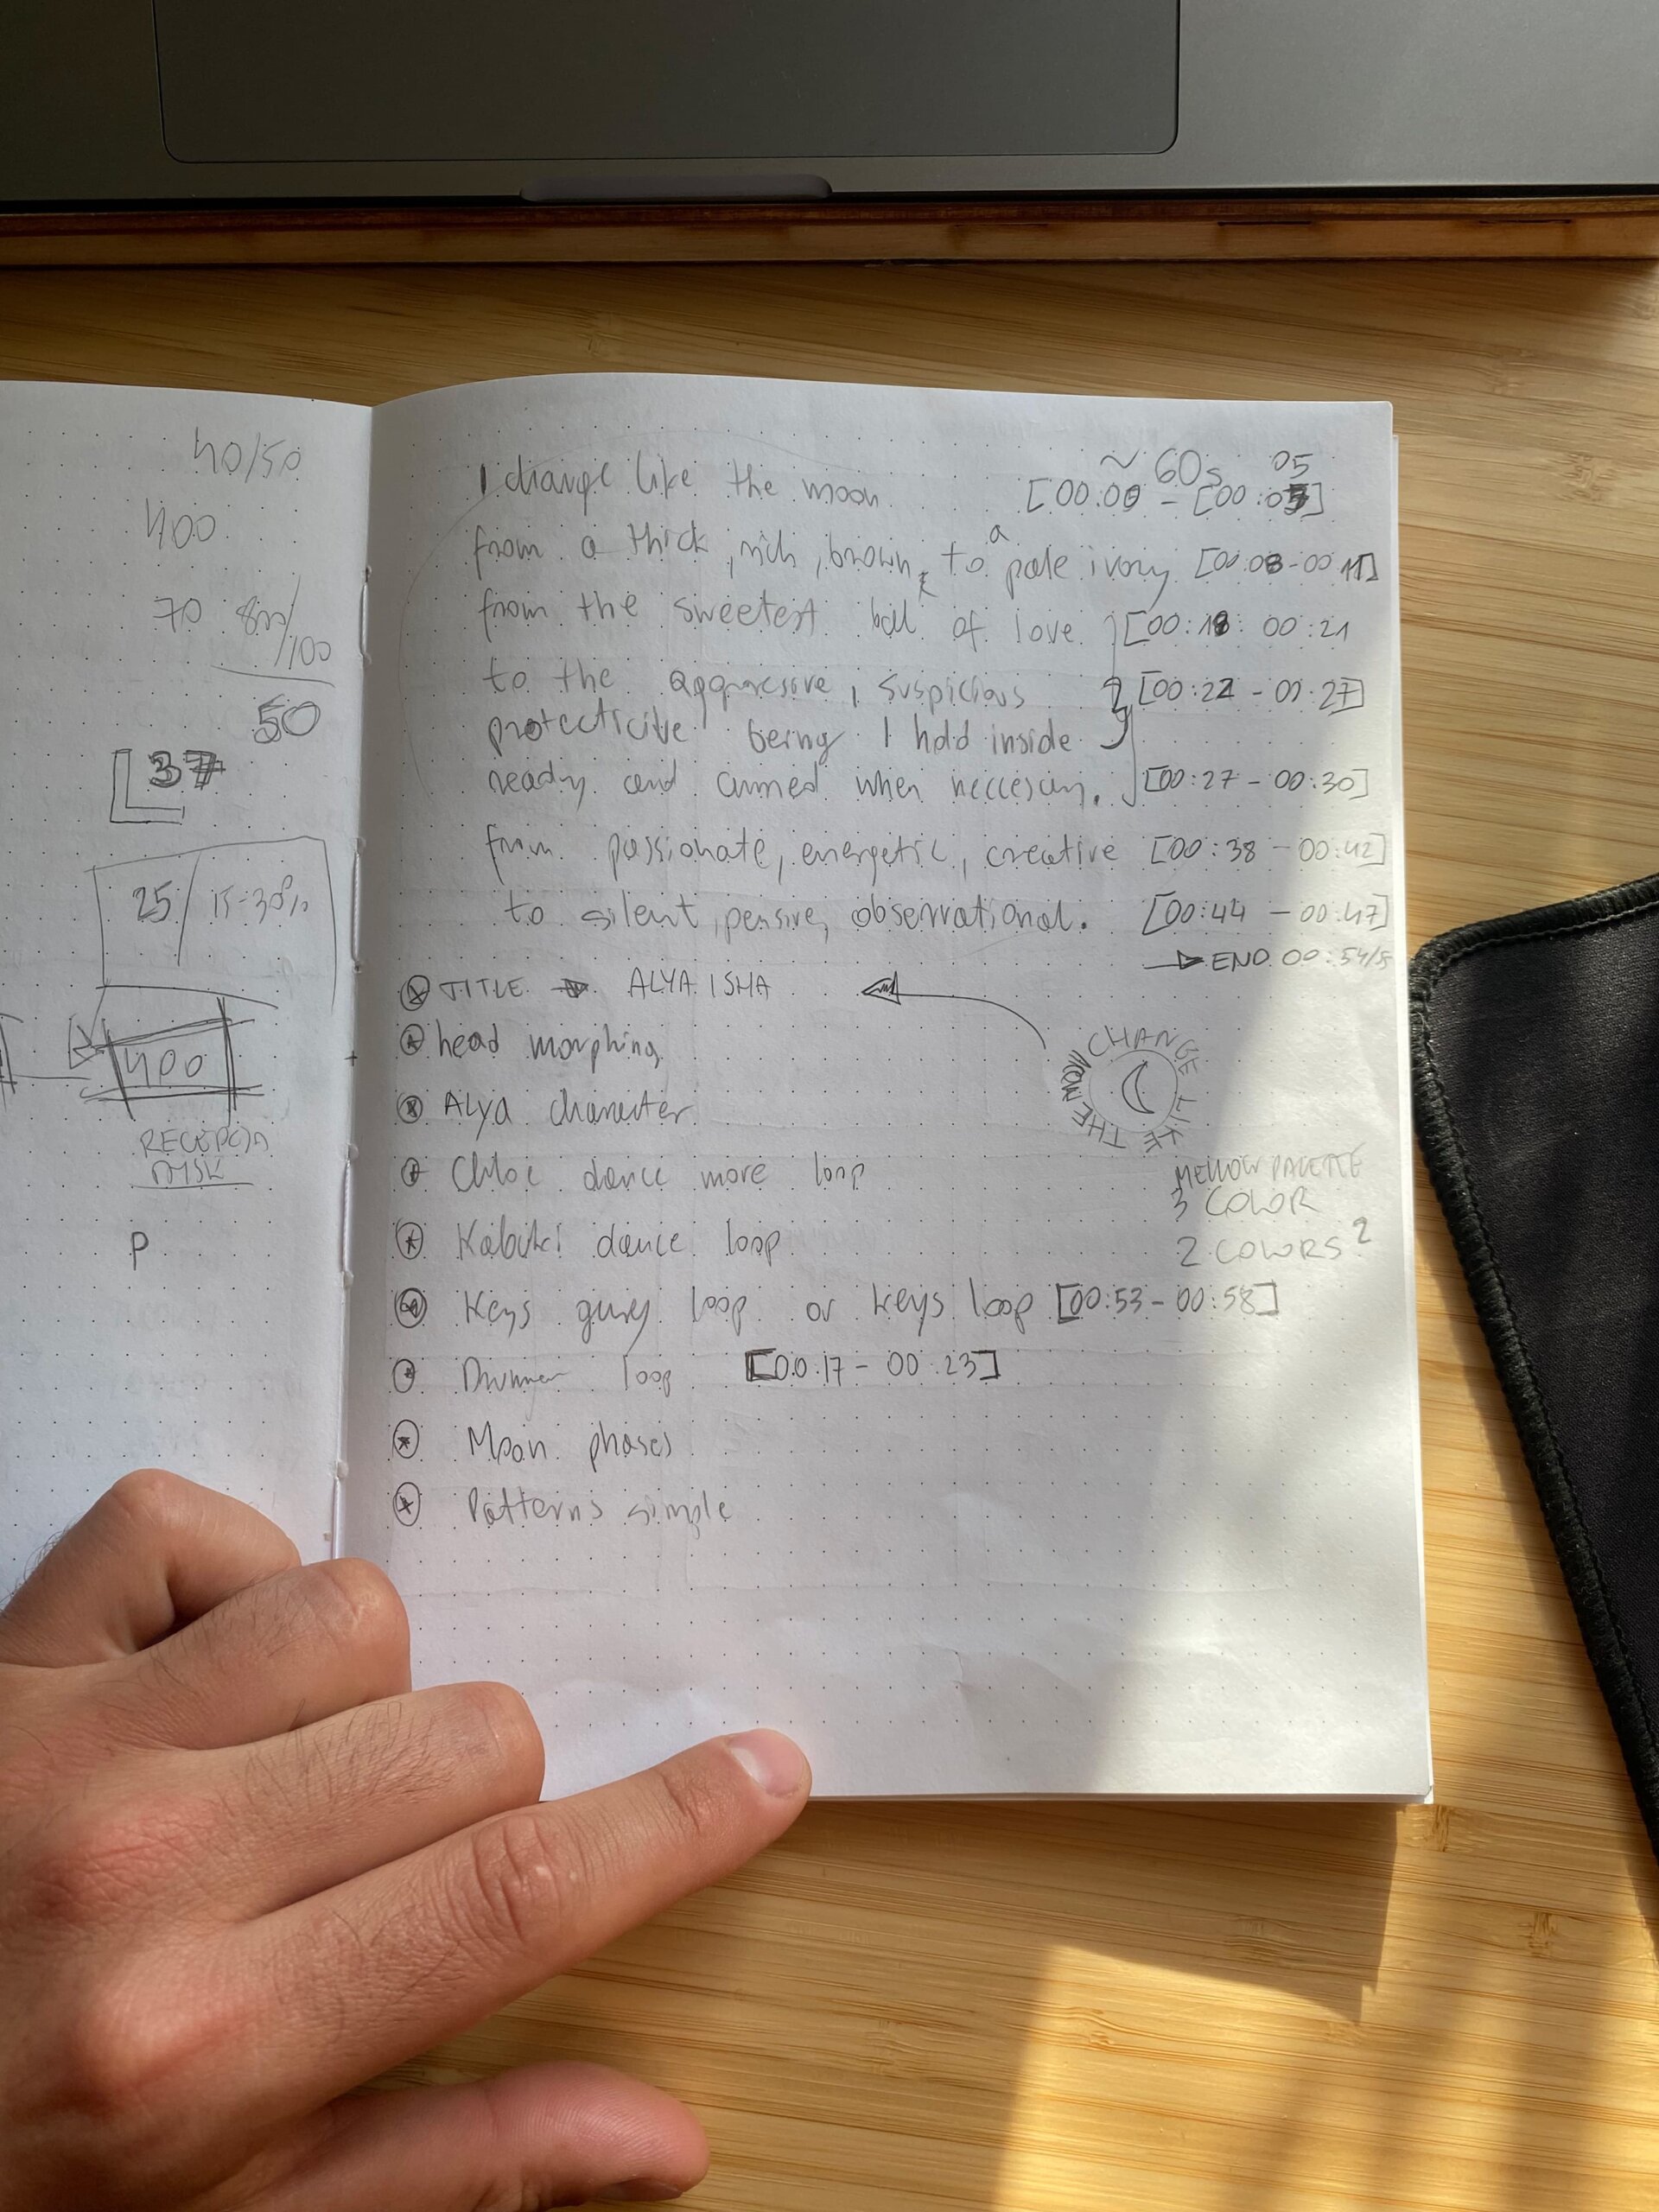 40/50
400
70 80/100
50
37
25/15-30%
400
RECEPCJA
DYSK
P
~ 60s 05
I change like the moon [00:00 - [00:05]
a
from a thick, rich, brown, to pale ivory [00:08-00 11]
from the sweetest ball of love [00:18: 00:21
to the aggressive, suspicious [00:22 - 00:27]
protecticive being I hold inside
ready and armed when neccesary. [00:27 - 00:30]
from passionate, energetic, creative [00:38 - 00:42]
to silent, pensive, observational. [00:44 - 00:47]
END 00:54/5
TITLE ALYA ISHA
head morphing
CHANGE LIKE THE MOON
Alya character
Chloe dance more loop
MELLOW PALETTE
3 COLOR
Kabuki dance loop
2 COLORS ?
Keys guey loop or keys loop [00:53 - 00:58]
Drummer loop [00:17 - 00:23]
Moon phases
Patterns simple